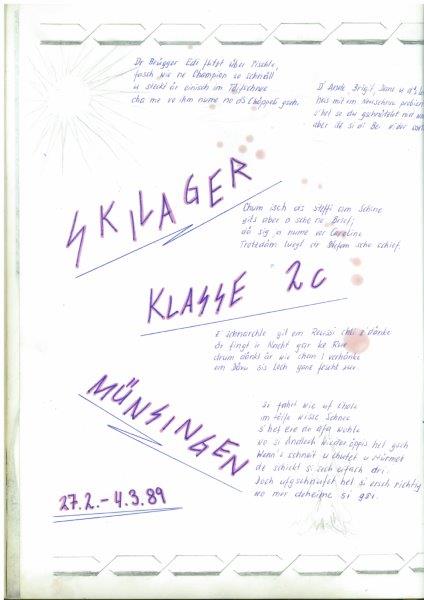 Dr Brügger Edi flitzt über Pischte,
fasch wie ne Champion so schnäll
u steckt är einisch im Töifschnee
cha me vo ihm nume no ds Chäppeli gseh.
D' Ande Brigit, Jane u
hei s mit em Neuschnee probiert
s'het se du
aber de si di Be wider
SKILAGER
Chum isch ds Steffi am Schine
gits aber o scho ne Brief;
dä sig a nume vor Caroline
Trotzdäm luegt dr Stefan scho schief.
KLASSE 2c
E Schnarchle git em
är fingt ir Nacht gar ke Rue
drum dänkt är wie chan i verhänke
em Dänu sis Loch ganz fescht zue
MÜNSINGEN
Si fahrt wie uf Chole
im töife wisse Schnee
s'het ere
wo si Ändlech wieder öppis het gseh
Wenn's schneit u chutet u stürmet
de schickt si sech eifach dri.
Doch ufgschnufet het si ersch richtig
wo mer deheime si gsi.
27.2.-4.3.89